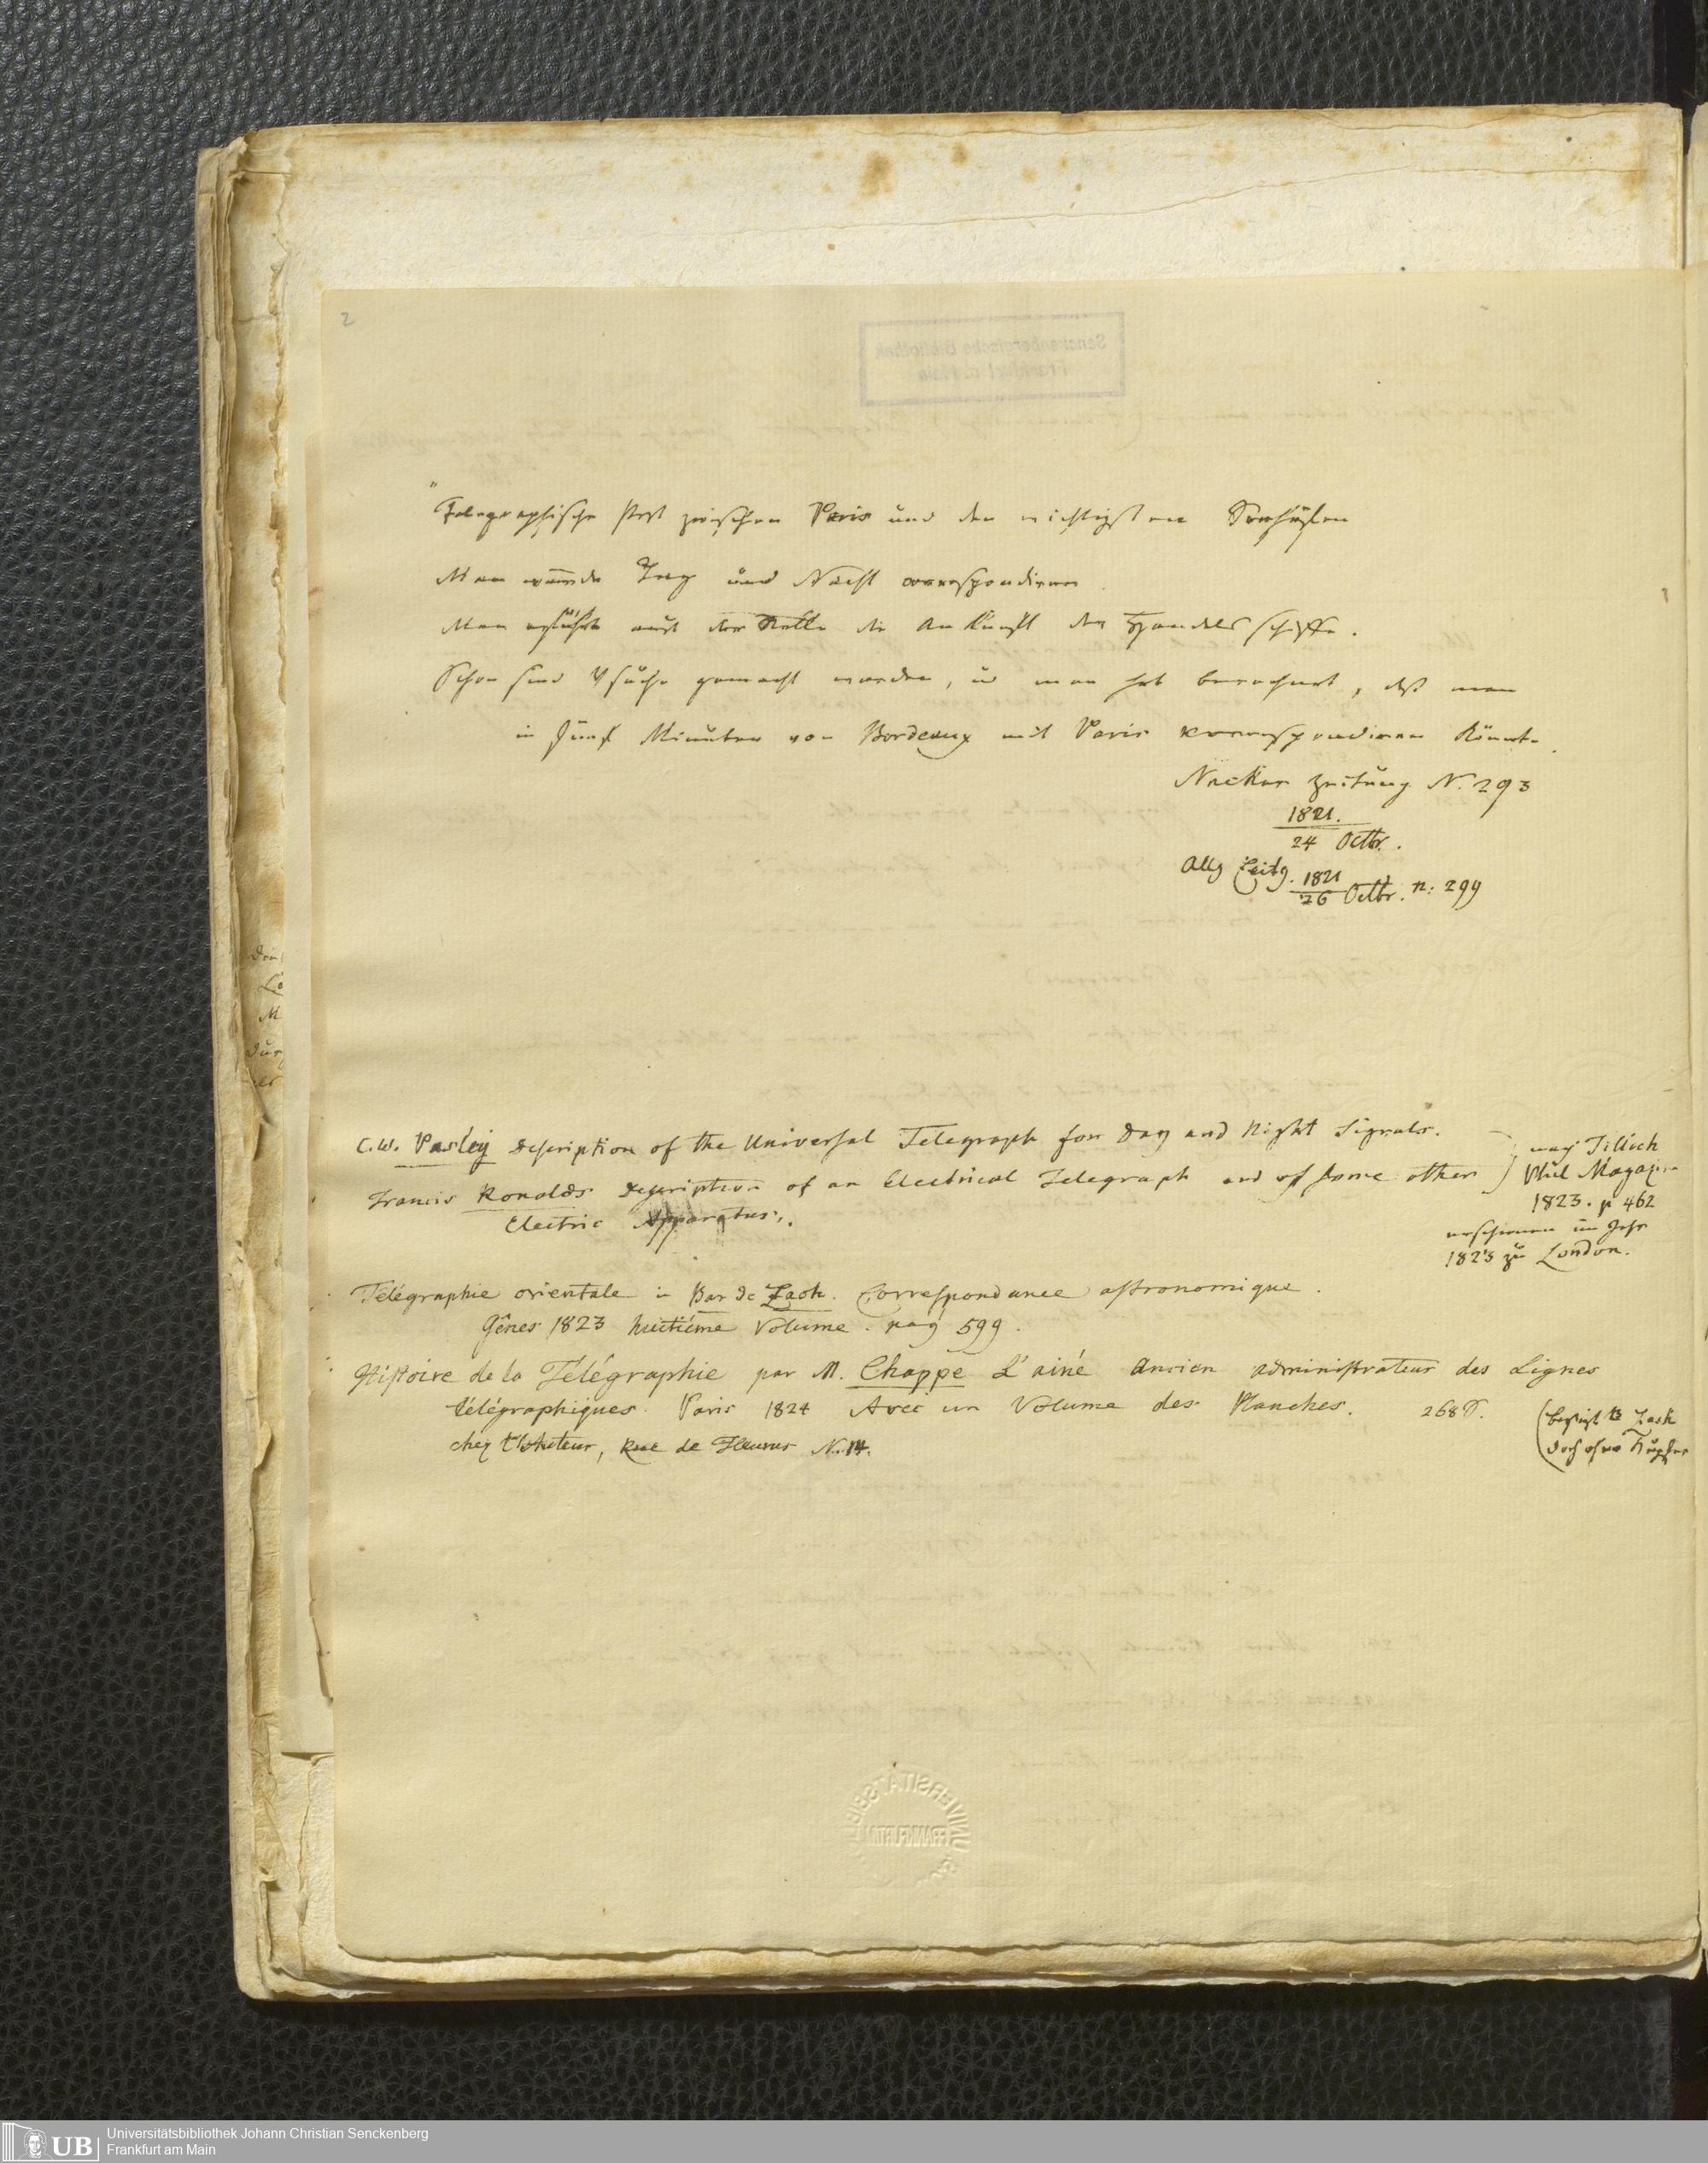 2
"Telegraphische Post zwischen Paris und den wichtigsten Seehäfen
Man würde Tag und Nacht correspondiren
Man erführe auf der Stelle die Ankunft der Handelsschiffe.
Schon sind Vsuche gemacht worden, u man hat berechnet, dß man
in fünf Minuten von Bordeaux mit Paris korrespondiren könnte.
Neckar Zeitung N. 293
1821.
24 Octbr.
Allg Zeitg. 1821
26 Octbr. n: 299
C.W. Pasley Description of the Universal Telegraph for Day and Night Signals.
Francis Ronalds Description of an Electrical Telegraph and of some other
Electric Apparatus.
nach Tilloch
Phil Magazin
1823. p 462
erschienen im Jahr
1823 zu London.
Télégraphie orientale in Bar de Zach. Correspondance astronomique.
Gênes 1823 huitième Volume. pag 599.
Histoire de la Télégraphie par M. Chappe L'ainé Ancien administrateur des Lignes
télégraphiques. Paris 1824 Avec un Volume des Planches. 268 S.
chez l'Auteur, Rue de Fleurus N. 14.
(besizt Zach
doch ohne Kupfer
Senckenbergische Bibliothek
Frankfurt a. Main
UB
Universitätsbibliothek Johann Christian Senckenberg
Frankfurt am Main